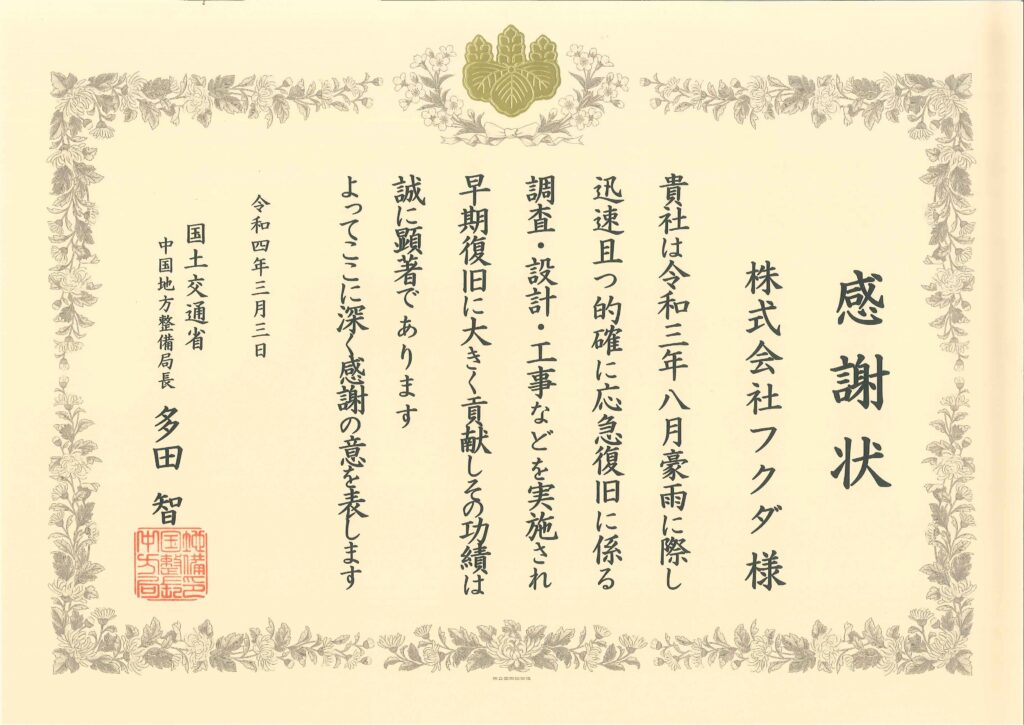 感謝状
株式会社フクダ様
貴社は令和三年八月豪雨に際し
迅速且つ的確に応急復旧に係る
調査・設計・工事などを実施され
早期復旧に大きく貢献しその功績は
誠に顕著であります
よってここに深く感謝の意を表します
令和四年三月三日
国土交通省
中国地方整備局長 多田 智